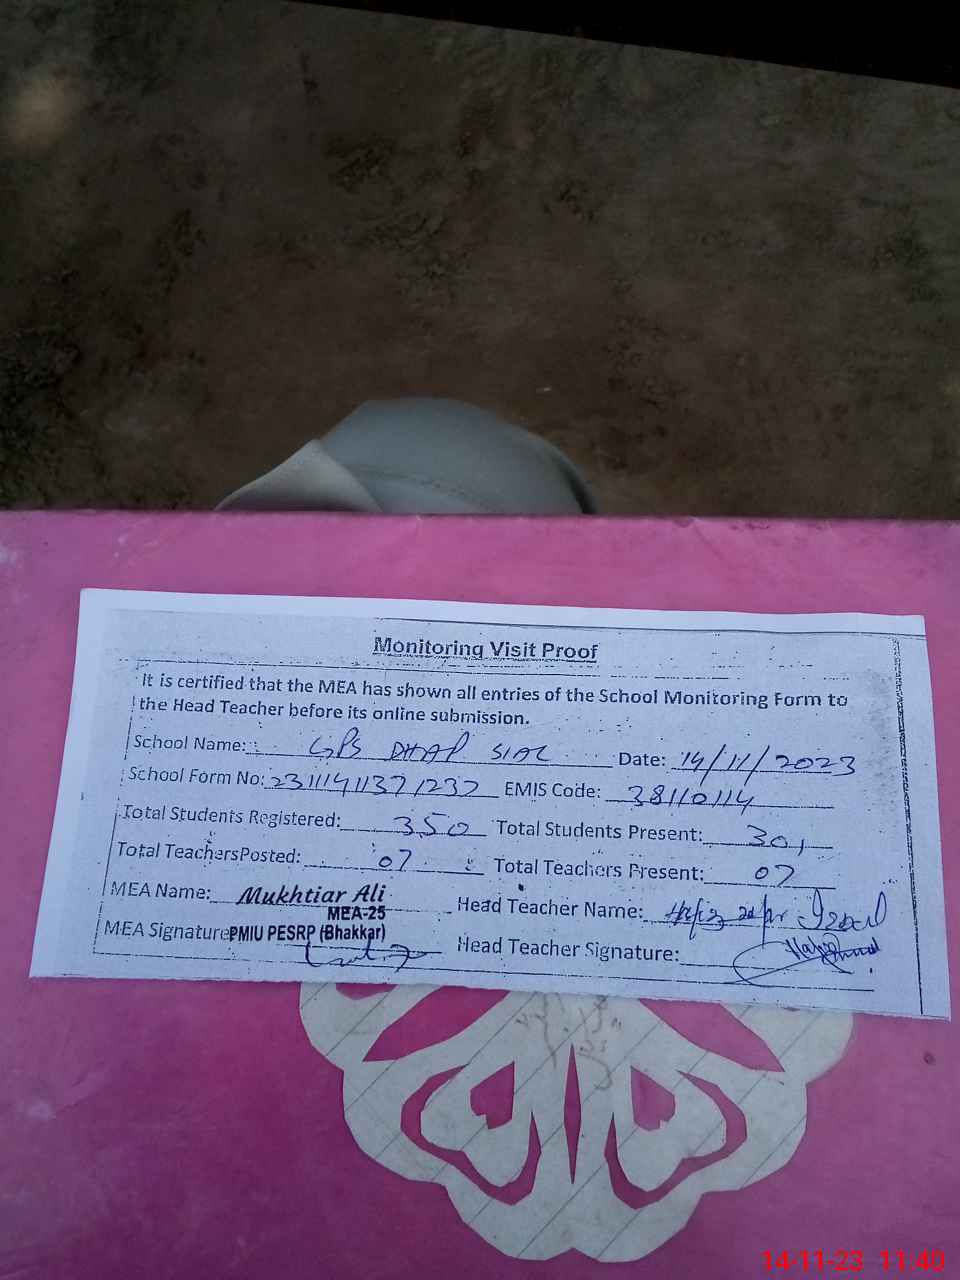 Monitoring Visit Proof
It is certified that the MEA has shown all entries of the School Monitoring Form to
the Head Teacher before its online submission.
School Name: GPS DHAP SIAL Date: 14/11/2023
School Form No: 23111411371237 EMIS Code: 38110114
Total Students Registered: 350 Total Students Present: 301
Total TeachersPosted: 07 Total Teachers Present: 07
MEA Name: Mukhtiar Ali
MEA-25
Head Teacher Name: Hafiz
MEA Signature PMIU PESRP (Bhakkar)
Head Teacher Signature:
14-11-23 11:40